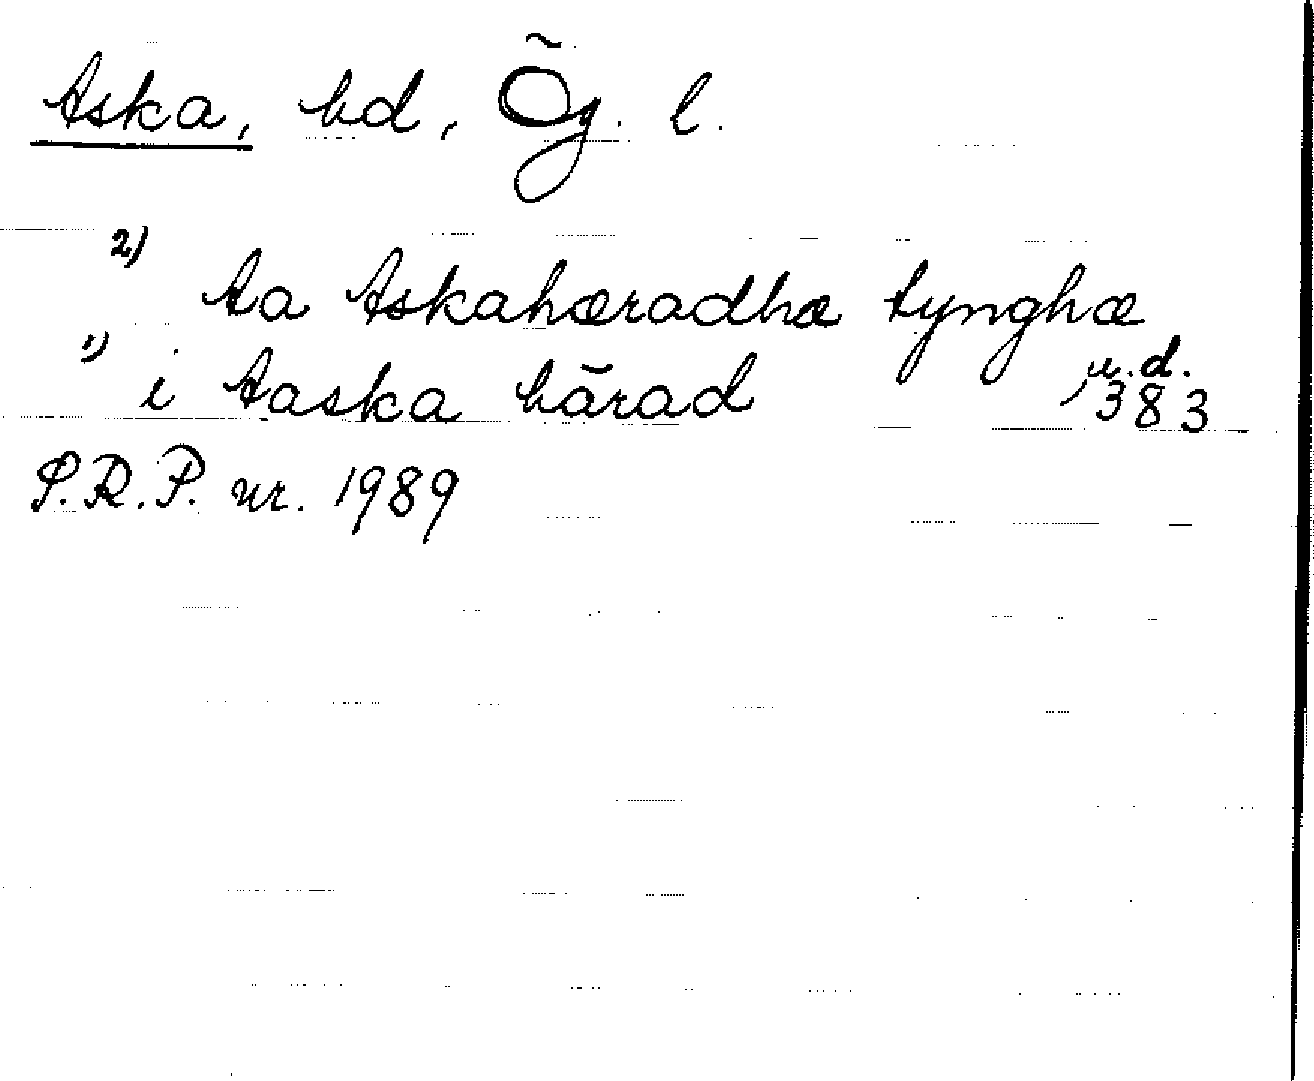 Aska, hd, Ög. l.
2) Aa Askahæradhæ tynghæ
1) i Aaska hārad u.d. 1383
S.R.P. nr. 1989